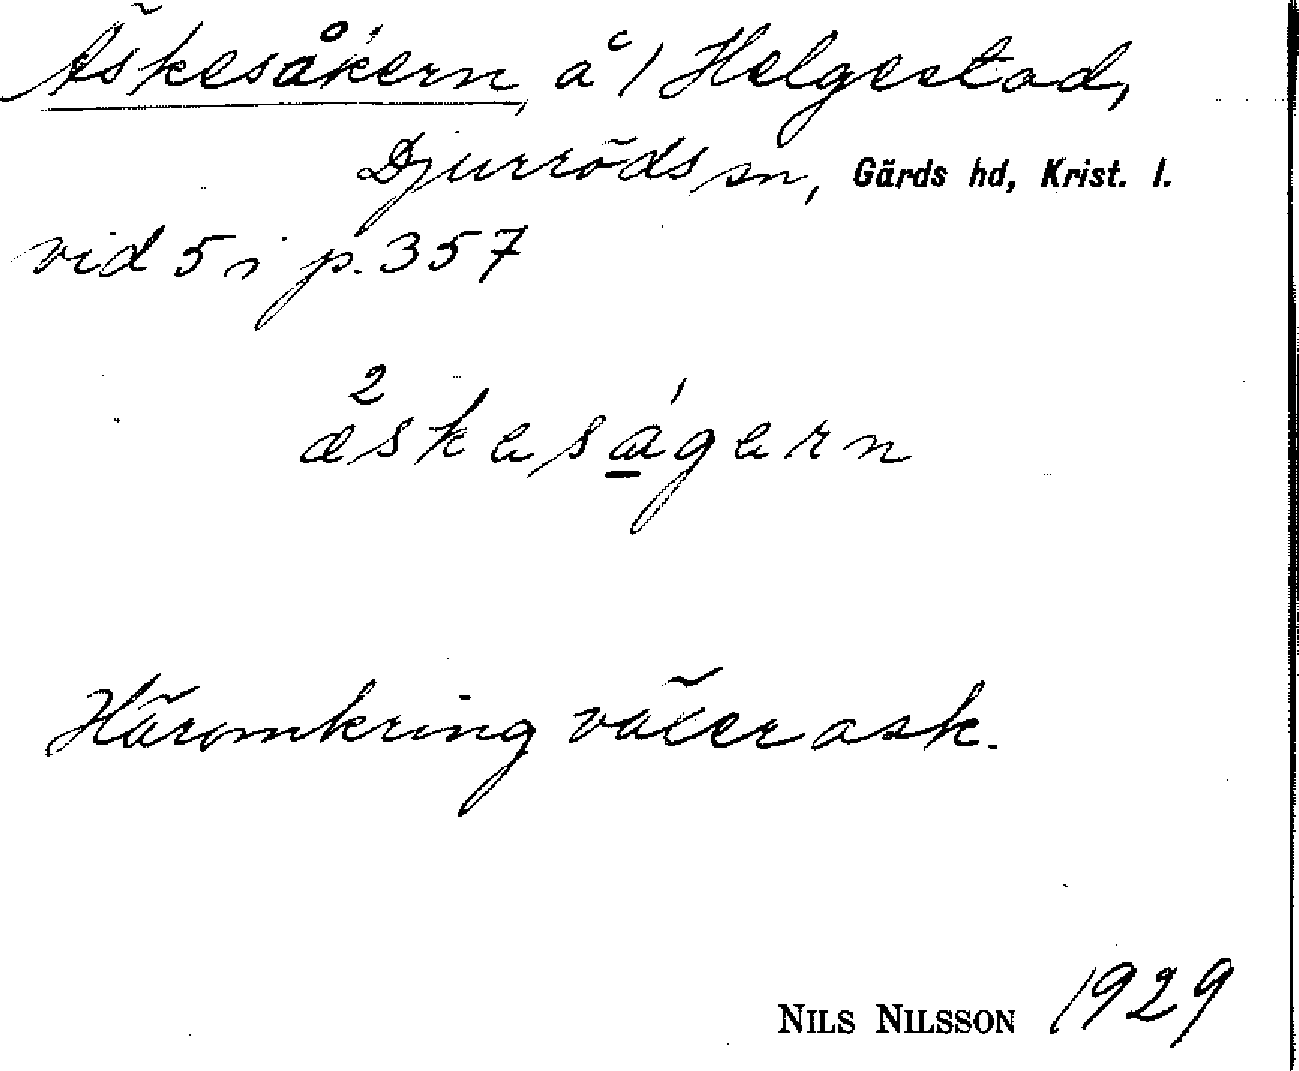 Äskesåkern, å 1 Helgestad,
Djurröds sn, Gärds hd, Krist. l.
vid 5 i p. 357
æ²skesa̱´gern
Häromkring växer ask.
NILS NILSSON 1929